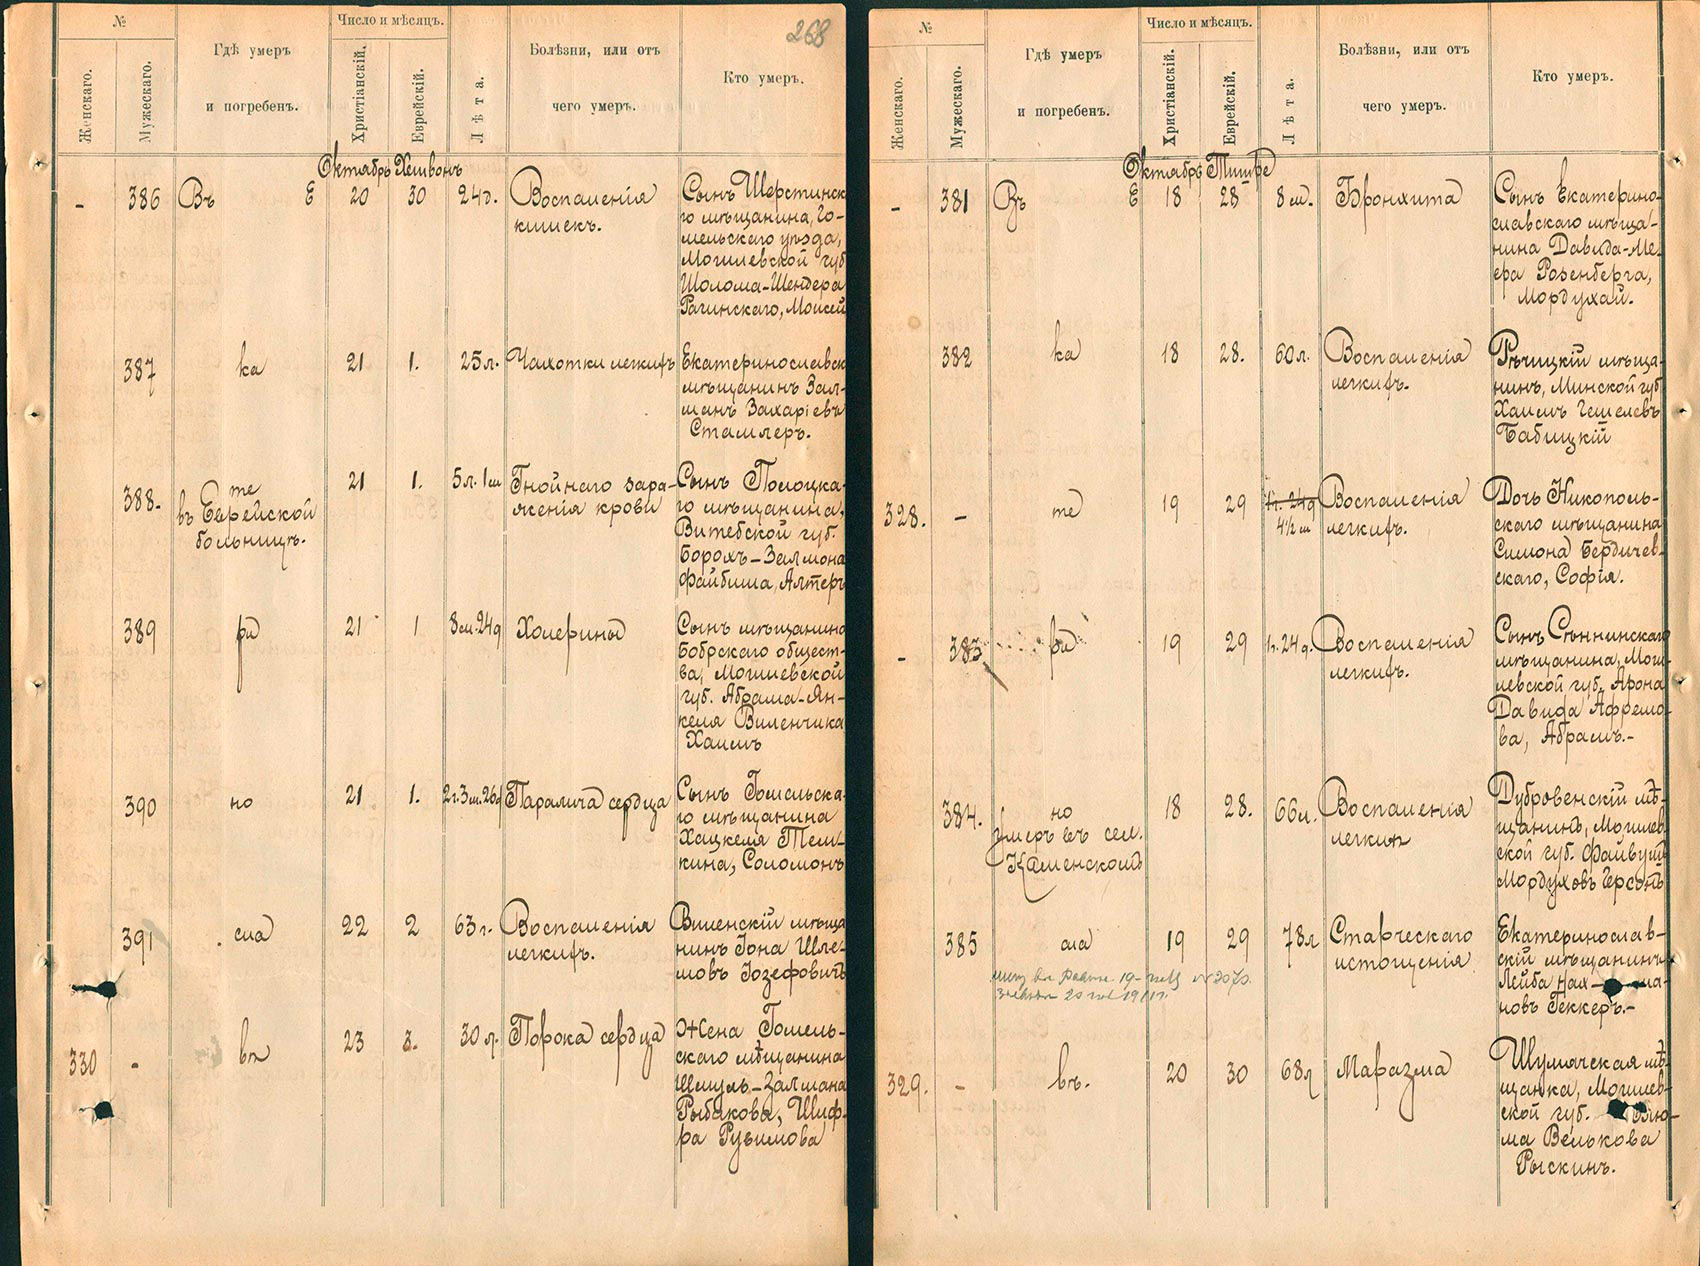 268
№
Женскаго.
Мужескаго.
Гдѣ умеръ
и погребенъ.
Число и мѣсяцъ.
Христіанскій.
Еврейскій.
Лѣта.
Болѣзни, или отъ
чего умеръ.
Кто умеръ.
Октябрь Хешвонъ
- 386 Въ Е 20 30 24д.
Воспаленія
кишекъ.
Сынъ Шерстинска
го мѣщанина, Го-
мельскаго уѣзда,
Могилевской губ
Шолома-Шендера
Рагинскаго, Моисей
387 ка 21 1. 25л.
Чахотки легкихъ
Екатеринославск
мѣщанинъ Зал-
манъ Захаріевъ
Стамлеръ.
388. те
въ Еврейской
больницѣ.
21 1. 5л. 1м
Гнойнаго зара-
женія крови
Сынъ Полоцка-
го мѣщанина,
Витебской губ.
Борохъ-Залмона
Файбиша, Алтеръ
389 ри 21 1 8м.24д
Холерины
Сынъ мѣщанина
Бобрскаго общест-
ва, Могилевской
губ. Абрама-Ян-
келя Виленчика
Хаимъ
390 но 21 1. 2г.3м.26д
Паралича сердца
Сынъ Гомельска-
го мѣщанина
Хацкеля Тем-
кина, Соломонъ
391 сла 22 2 63г.
Воспаленія
легкихъ.
Виленскій мѣща
нинъ Іона Шле-
мовъ Іозефовичъ
330 - въ 23 3. 30 л.
Порока сердца
Жена Гомель-
скаго мѣщанина
Шмуль-Залмана
Рыбакова, Шиф-
ра Рувимова
№
Женскаго.
Мужескаго.
Гдѣ умеръ
и погребенъ.
Число и мѣсяцъ.
Христіанскій.
Еврейскій.
Лѣта.
Болѣзни, или отъ
чего умеръ.
Кто умеръ.
Октябрь Тишре
- 381 Въ Е 18 28 8 м.
Бронхита
Сынъ Екатерино-
славскаго мѣща-
нина Давида-Ме-
ера Розенберга,
Мордухай.
382 ка 18 28. 60л.
Воспаленія
легкихъ.
Рѣчицкій мѣща-
нинъ, Минской губ
Хаимъ Гешелевъ
Бабицкій
328. - те 19 29 1г. 24д
4½ м
Воспаленія
легкихъ.
Дочь Никополь-
скаго мѣщанина
Симона Бердичев-
скаго, Софія.
- 383 ри 19 29 1г. 24д.
Воспаленія
легкихъ.
Сынъ Сѣннинскаго
мѣщанина, Моги-
левской губ. Арона
Давида Афремо-
ва, Абрамъ.-
384. но
умеръ въ сел.
Каменскомъ
18 28. 66л.
Воспаленія
легкихъ
Дубровенскій мѣ-
щанинъ, Могилев
ской губ. Файвуш
Мордуховъ Герсонъ
385 сла 19 29 78л
Старческаго
истощенія
Екатеринослав-
скій мѣщанинъ
Лейба Нах-ма-
новъ Геккеръ.-
329. - въ. 20 30 68л
Маразма
Шумячская мѣ-
щанка, Могилев-
ской губ.
ма Велькова
Рыскинъ.